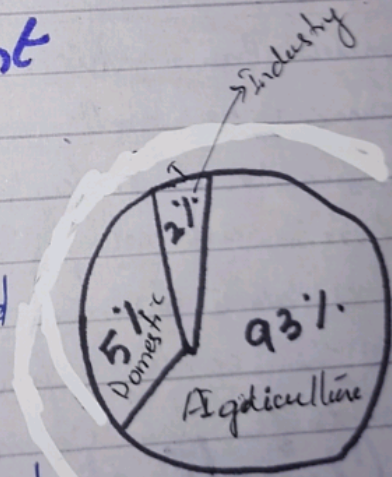 Industry
2%
5%
Domestic
93%
Agriculture